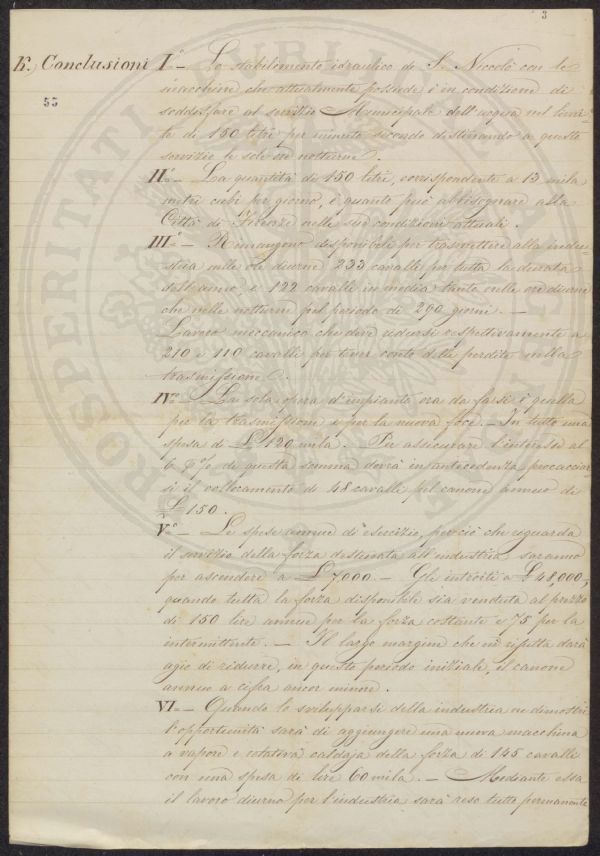 3
K. Conclusioni
55
I.° — Lo stabilimento idraulico di S. Niccolò con le
macchine che attualmente possiede è in condizione di
soddisfare al servizio Municipale dell'acqua nel limi-
te di 150 litri per minuto secondo destinando a questo
servizio le sole ore notturne.
II.° — La quantità di 150 litri, corrispondente a 13 mila
metri cubi per giorno, è quanto può abbisognare alla
Città di Firenze nelle sue condizioni attuali.
III.° — Rimangono disponibili per trasmettere alla indu-
stria nelle ore diurne 233 cavalli per tutta la durata
dell'anno e 122 cavalli in media tanto nelle ore diurne
che nelle notturne pel periodo di 290 giorni. —
Lavoro meccanico che deve ridursi respettivamente a
210 e 110 cavalli per tener conto delle perdite nella
trasmissione.
IV.° — La sola opera d'impianto ora da farsi è quella
per la trasmissione e per la nuova foce. — In tutto una
spesa di £ 120 mila. Per assicurare l'interesse al
6 p% di questa somma dovrà in antecedenza procacciar
si il collocamento di 48 cavalli pel canone annuo di
£ 150.
V.° — Le spese annue di esercizio, perciò che riguarda
il servizio della forza destinata all'industria, saranno
per ascendere a £ 7,000. — Gli introiti a £ 48,000,
quando tutta la forza disponibile sia venduta al prezzo
di 150 lire annue per la forza costante e 75 per la
intermittente. — Il largo margine che ne risulta darà
agio di ridurre, in questo periodo iniziale, il canone
annuo a cifra ancor minore.
VI. — Quando lo svilupparsi della industria ne dimostri
l'opportunità sarà di aggiungere una nuova macchina
a vapore e relativa caldaja della forza di 145 cavalli
con una spesa di lire 60 mila. — Mediante essa
il lavoro diurno per l'industria sarà reso tutto permanente
PROSPERITATI PUBLICAE